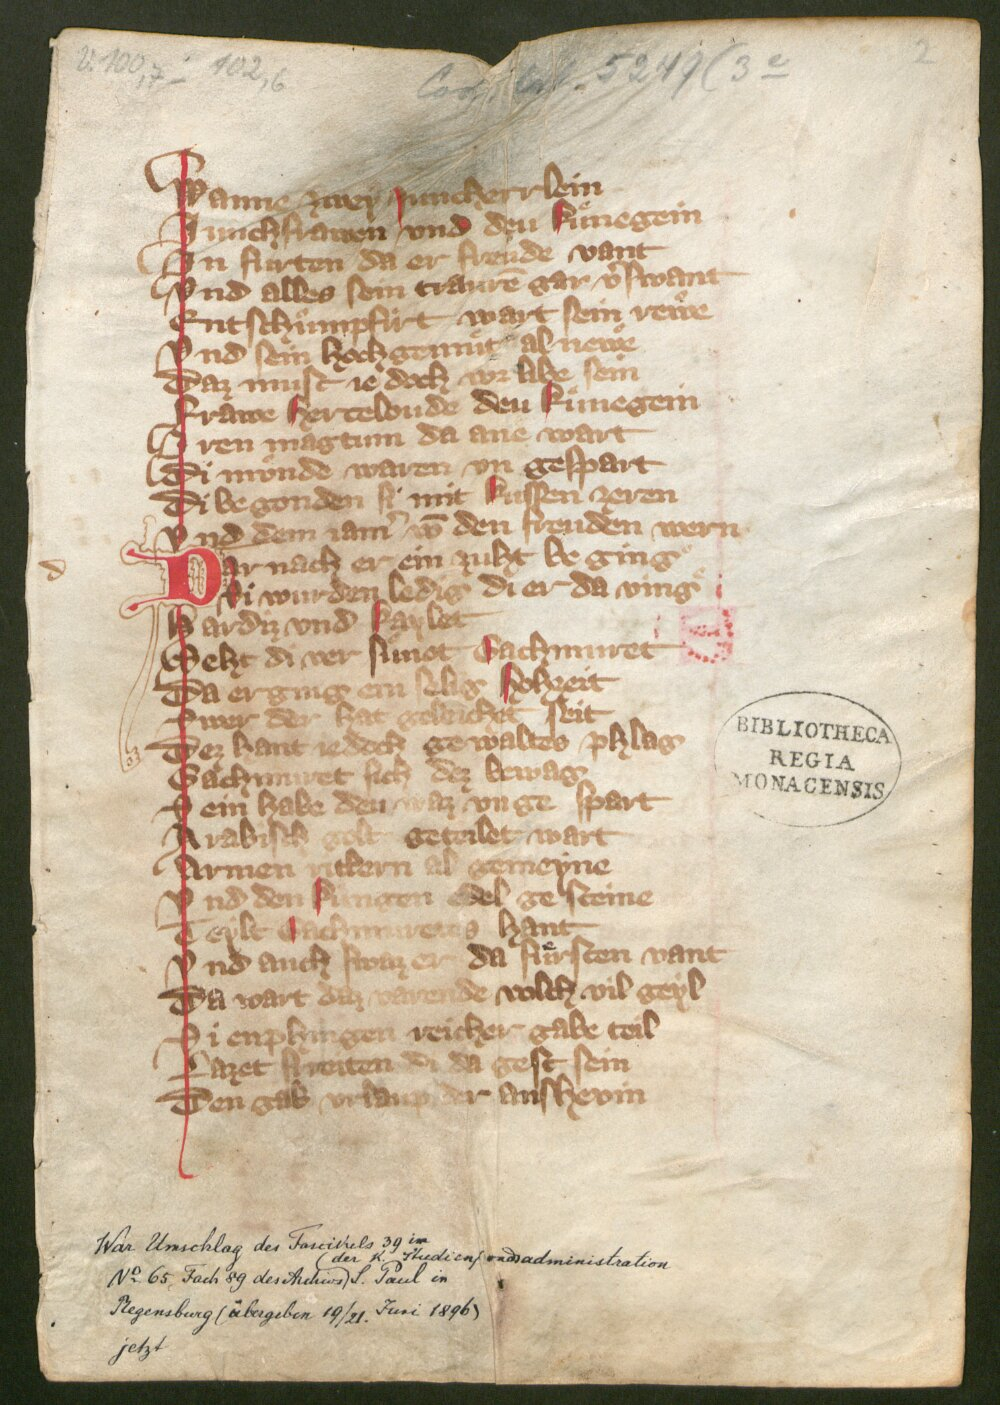 V. 100,7 - 102,6
Cod. germ. 5249(3e
2
Wanne zwey iuncherrlein
Iunchfrawen vnd deu kuͤnegein
In furten da er freude vant
Vnd alles sein traurē gar v'swant
Entschuͤmpfirt wart sein rewe
Vnd sein hochgemuͤt al newe
Daz must ie doch vor libe sein
Frawe herceloude deu kuͤnegein
Iren magtum da ane wart
Di muͦnde waren vn gespart
Di be gonden si mit kussen zeren
Vnd dem iam' vō den freuden wern
d
Dar nach er ein zuht be ging
Si wurden ledig di er da ving
Hardiz vnd kaylet
Seht di ver suͤnet Gachmuret
Da erging ein selig hohzeit
Swer der hat gelaichet seit
Dez hant iedoch gewaltes phlag
Gachmuret sich dez bewag
Sein habe deu waz vnge spart
Arabisch golt geteilet wart
Armen rittern al gemeyne
Vnd den kungen edel ge steine
Teylt Gachmuretes hant
Vnd auch swaz er da fuͤrsten vant
Da wart daz varende volch vil geyl
Di enphingen reicher gabe teil
Lazet streiten di da gest sein
Den gab vrlaup der anshevin
BIBLIOTHECA
REGIA
MONACENSIS
War Umschlag des Fascikels 39 im
(der K. Studienfondsadministration
No. 65 Fach 89 des Archivs) S. Paul in
Regensburg (übergeben 19/21. Juni 1896)
jetzt